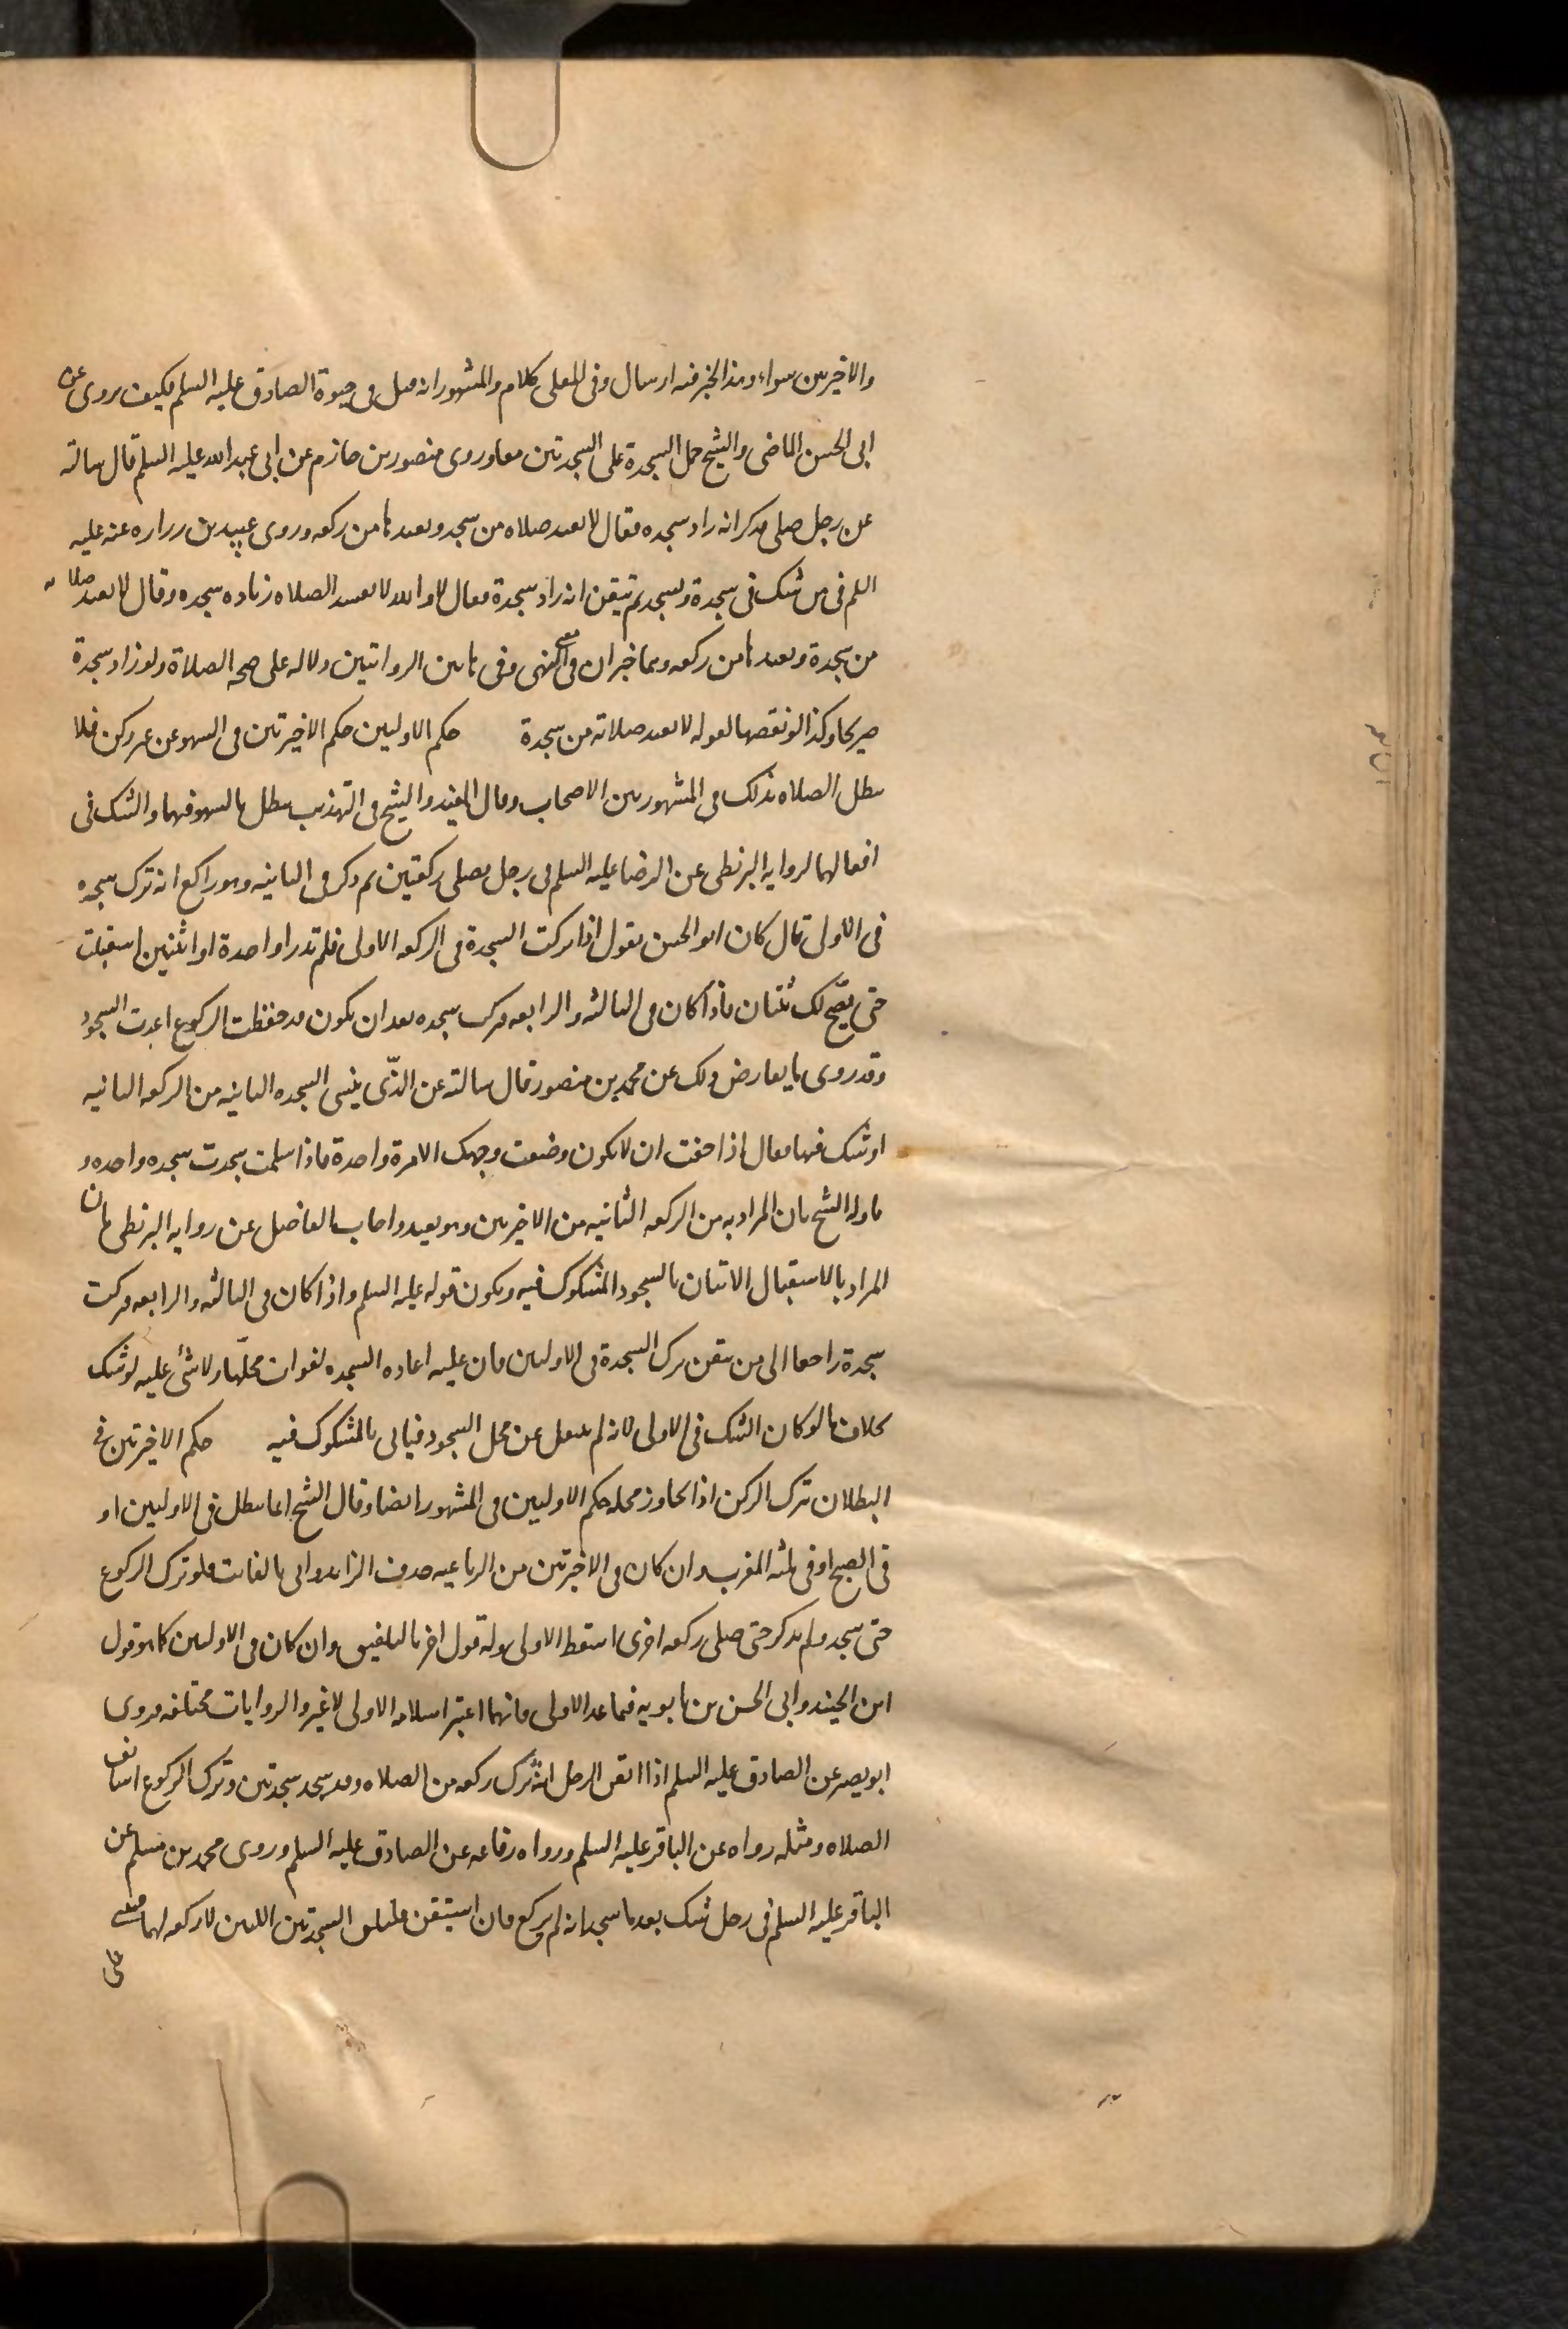 والاخيرتين سواء وهذا الخبر فيه ارسال وفى المعلى كلام والمشهور انه قتل فى حيوة الصادق عليه السلم فكيف يروى عن
ابى الحسن الماضى والشيخ حمل السجدة على السجدتين معا وروى منصور بن حازم عن ابى عبد الله عليه السلم قال سالته
عن رجل صلى فذكر انه زاد سجده فقال لا يعيد صلاه من سجده ويعيدها من ركعه وروى عبيد بن زراره عنه عليه
السلم فى من شك فى سجدة وسجد ثم تيقن انه زاد سجدة فقال لا والله لا يفسد الصلاه زياده سجده وقال لا يعيد صلاته
من سجدة ويعيدها من ركعه وهما خبران فى معنى النهى وفى هاتين الروايتين دلاله على صحه الصلاة ولو زاد سجدة
صريحا وكذا لو نقصها لقوله لا يعيد صلاته من سجدة حكم الاوليين حكم الاخيرتين فى السهو عن غير ركن فلا
يبطل الصلاه بذلك فى المشهور بين الاصحاب وقال المفيد والشيخ فى التهذيب يبطل بالسهو فيهما والشك فى
افعالهما لروايه البزنطى عن الرضا عليه السلم فى رجل يصلى ركعتين ثم ذكر فى الثانيه وهو راكع انه ترك سجده
فى الاولى قال كان ابو الحسن يقول اذا تركت السجدة فى الركعه الاولى فلم تدر اواحدة او اثنين استقبلت
حتى يصح لك ثنتان فاذا كان فى الثالثه والرابعه فتركت سجده بعد ان يكون قد حفظت الركوع اعدت السجود
وقد روى ما يعارض ذلك عن محمد بن منصور قال سالته عن الذى ينسى السجده الثانيه من الركعه الثانيه
او شك فيها فقال اذا خفت ان لا تكون وضعت وجهك الا مرة واحدة فاذا سلمت سجدت سجده واحده و
تاوله الشيخ بان المراد به من الركعه الثانيه من الاخيرتين وهو بعيد واجاب الفاضل عن روايه البزنطى بان
المراد بالاستقبال الاتيان بالسجود المشكوك فيه ويكون قوله عليه السلم واذا كان فى الثالثه والرابعه فتركت
سجدة راجعا الى من تيقن ترك السجدة فى الاوليين فان عليه اعاده السجده لفوات محلها ولا شئ عليه لو شك
بخلاف ما لو كان الشك فى الاولى لانه لم ينتقل عن محل السجود فياتى بالمشكوك فيه حكم الاخيرتين فى
البطلان بترك الركن اذا تجاوز محله حكم الاوليين فى المشهور ايضا وقال الشيخ انما يبطل فى الاوليين او
فى الصبح او فى ثلثه المغرب وان كان فى الاخيرتين من الرباعيه حذف الزايد واتى بالفائت فلو ترك الركوع
حتى سجد ولم يذكر حتى صلى ركعه اخرى اسقط الاولى وله قول اخر بالتلفيق وان كان فى الاوليين كما هو قول
ابن الجنيد وابى الحسن بن بابويه فيما عدا الاولى فانهما اعتبرا سلامه الاولى لا غير والروايات مختلفه فروى
ابو بصير عن الصادق عليه السلم اذا ايقن الرجل انه ترك ركعه من الصلاه وقد سجد سجدتين وترك الركوع استانف
الصلاه ومثله رواه عن الباقر عليه السلم ورواه رفاعه عن الصادق عليه السلم وروى محمد بن مسلم عن
الباقر عليه السلم فى رجل شك بعد ما سجد انه لم يركع فان استيقن فليلق السجدتين اللتين لا ركعه لهما فيبنى
على